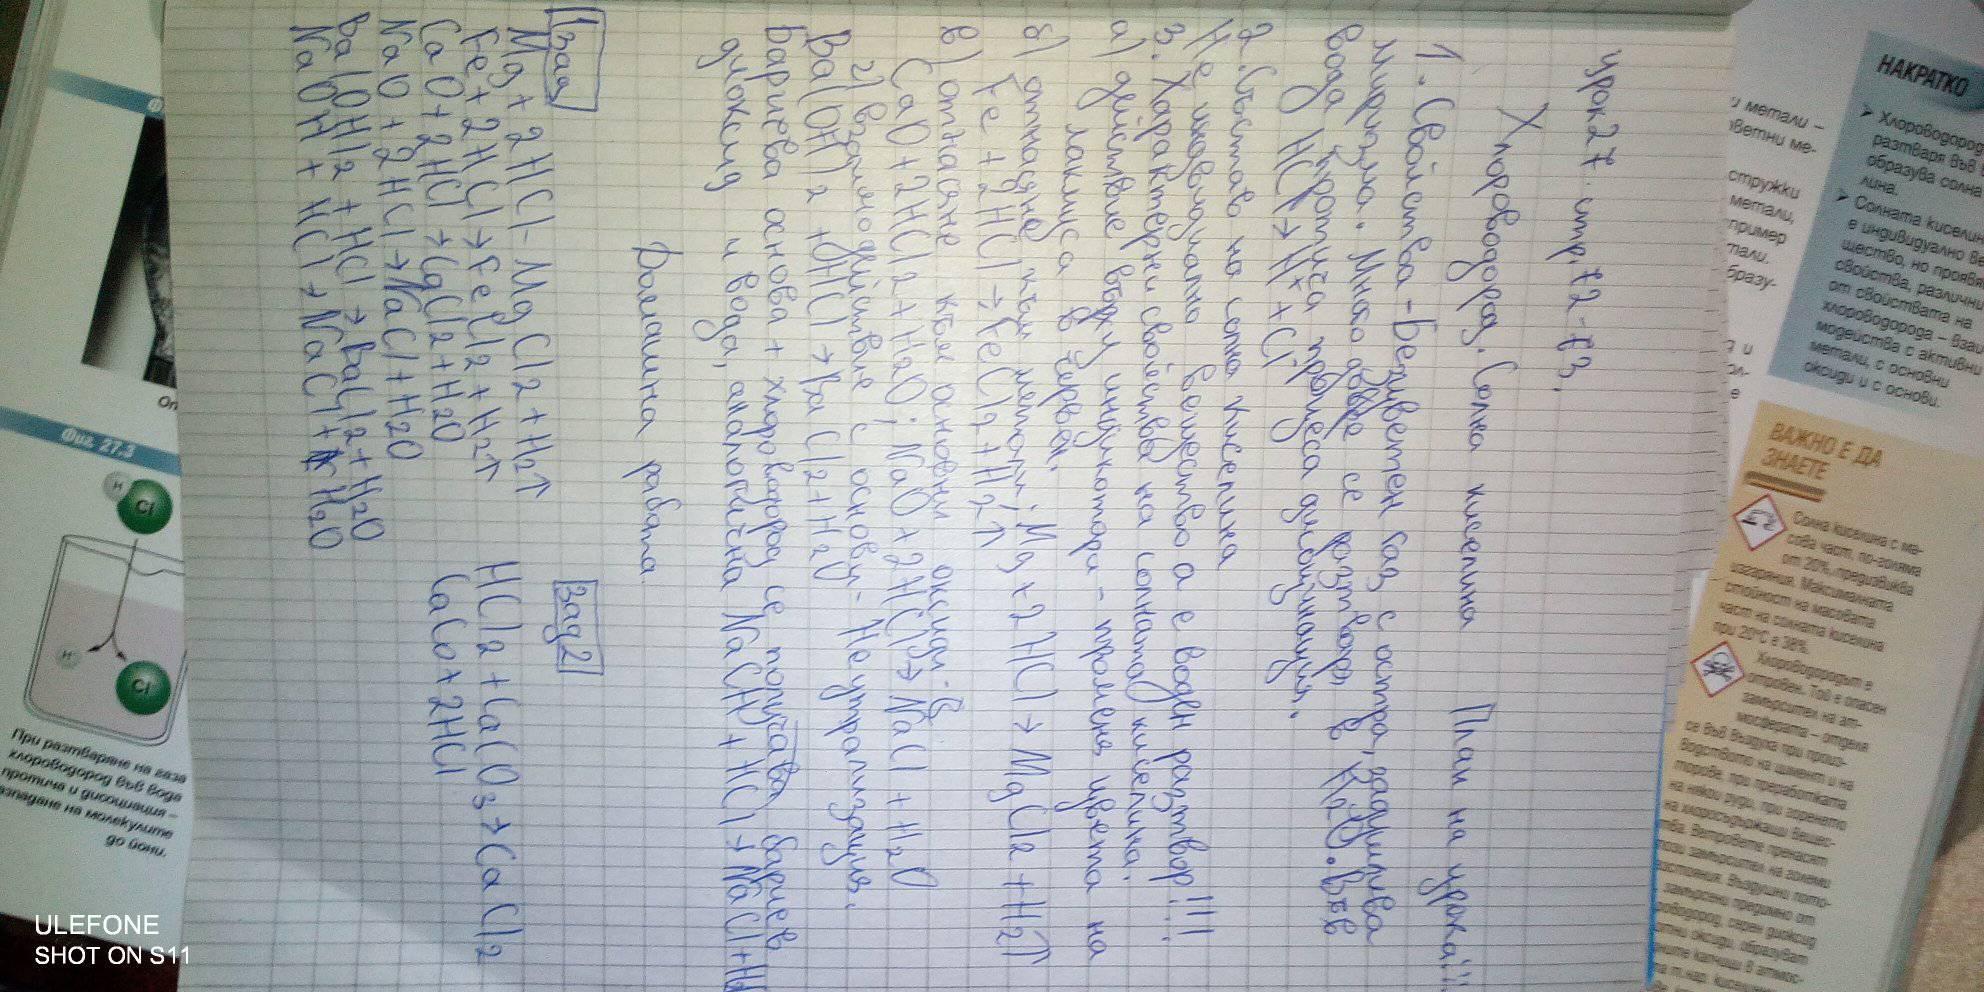 урок 27. стр. 72-73.
Хлороводород. Солна киселина План на урока!!!
1. Свойства - Безцветен газ с остра, задушлива
миризма. Много добре се разтваря в H2O. Във
вода протича процеса дисоциация.
HCl → H+ + Cl-
2. Състав на солна киселина
Не индивидуално вещество а е воден разтвор!!!
3. Характерни свойства на солната киселина:
а) действие върху индикатори - променя цвета на
лакмуса в червен.
б) отнасяне към метали: Mg + 2HCl → MgCl2 + H2↑
Fe + 2HCl → FeCl2 + H2↑
в) отнасяне към основни оксиди:
CaO + 2HCl2 + H2O; NaO + 2HCl → NaCl + H2O
г) взаимодействие с основи - Неутрализация.
Ba(OH)2 + HCl → BaCl2 + H2O
Бариева основа + хлороводород се получава бариев
диоксид и вода, аналогична NaOH + HCl → NaCl + H
Домашна работа
1 зад
Mg + 2HCl - MgCl2 + H2↑
Fe + 2HCl → FeCl2 + H2↑
CaO + 2HCl → CgCl2 + H2O
NaO + 2HCl → NaCl + H2O
Ba(OH)2 + HCl → BaCl2 + H2O
NaOH + HCl → NaCl + H2O
Зад 2
HCl2 + CaCO3 → CaCl2
CaCo + 2HCl
НАКРАТКО
➤ Хлороводород
разтваря във
образува солна
лина.
➤ Солната киселин
е индивидуално ве
щество, но проявя
свойства, различни
от свойствата на
хлороводорода – взаи
модейства с активни
метали, с основни
оксиди и с основи.
ВАЖНО Е ДА
ЗНАЕТЕ
Солна киселина с ма-
сова част, по-голяма
от 20%, предизвиква
изгаряния. Максималната
стойност на масовата
част на солната киселина
при 20°C е 38%.
Хлороводородът е
отровен. Той е опасен
замърсител на ат-
мосферата – отделя
се във въздуха при произ-
водството на цимент и на
торове, при преработката
на някои руди, при горенето
на хлорсъдържащи вещес-
тва. Ветровете пренасят
този замърсител на големи
разстояния. Въздушни пото-
замърсени предимно от
хлороводород, серен диоксид
азотни оксиди, образуват
и метали –
ветни ме-
стружки
метали,
пример
тали.
бразу-
Фиг. 27.3
H
Cl
H
Cl
При разтваряне на газа
хлороводород във вода
протича и дисоциация –
разпадане на молекулите
до йони.
ULEFONE
SHOT ON S11